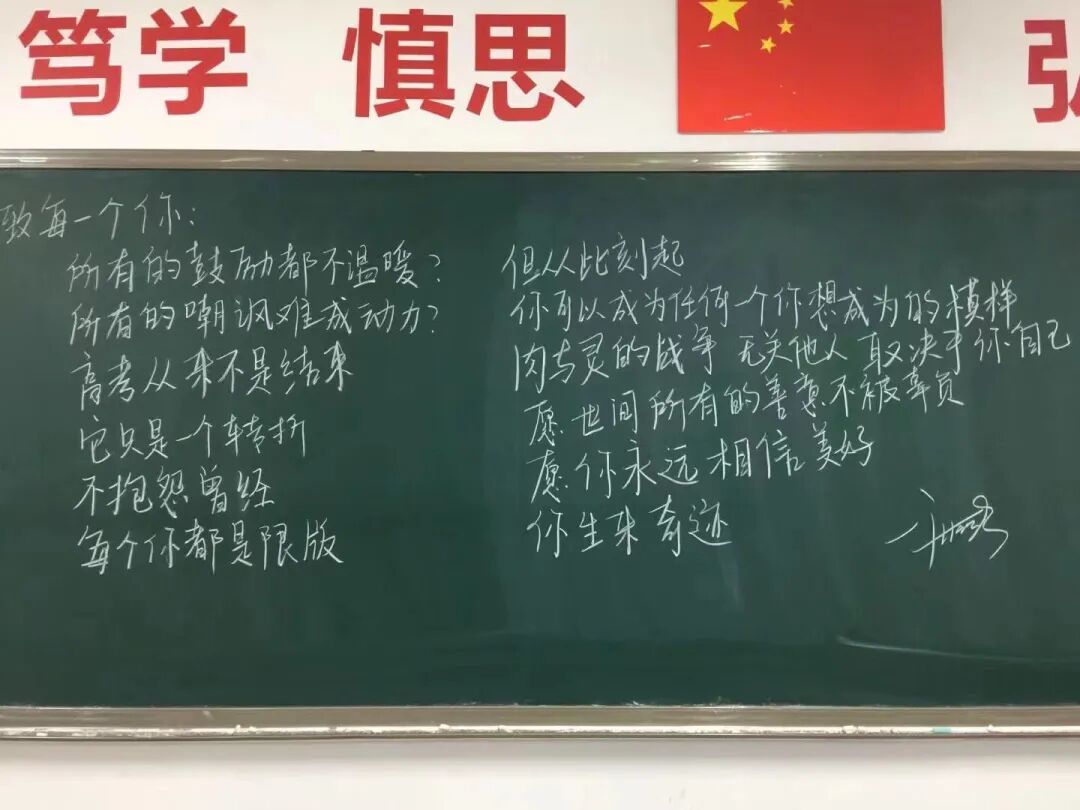 笃学 慎思 弘
致每一个你：
所有的鼓励都不温暖？
所有的嘲讽难成动力？
高考从来不是结束
它只是一个转折
不抱怨曾经
每个你都是限版
但从此刻起
你可以成为任何一个你想成为的模样
肉与灵的战争 无关他人 取决于你自己
愿世间所有的善意不被辜负
愿你永远相信美好
你生来奇迹